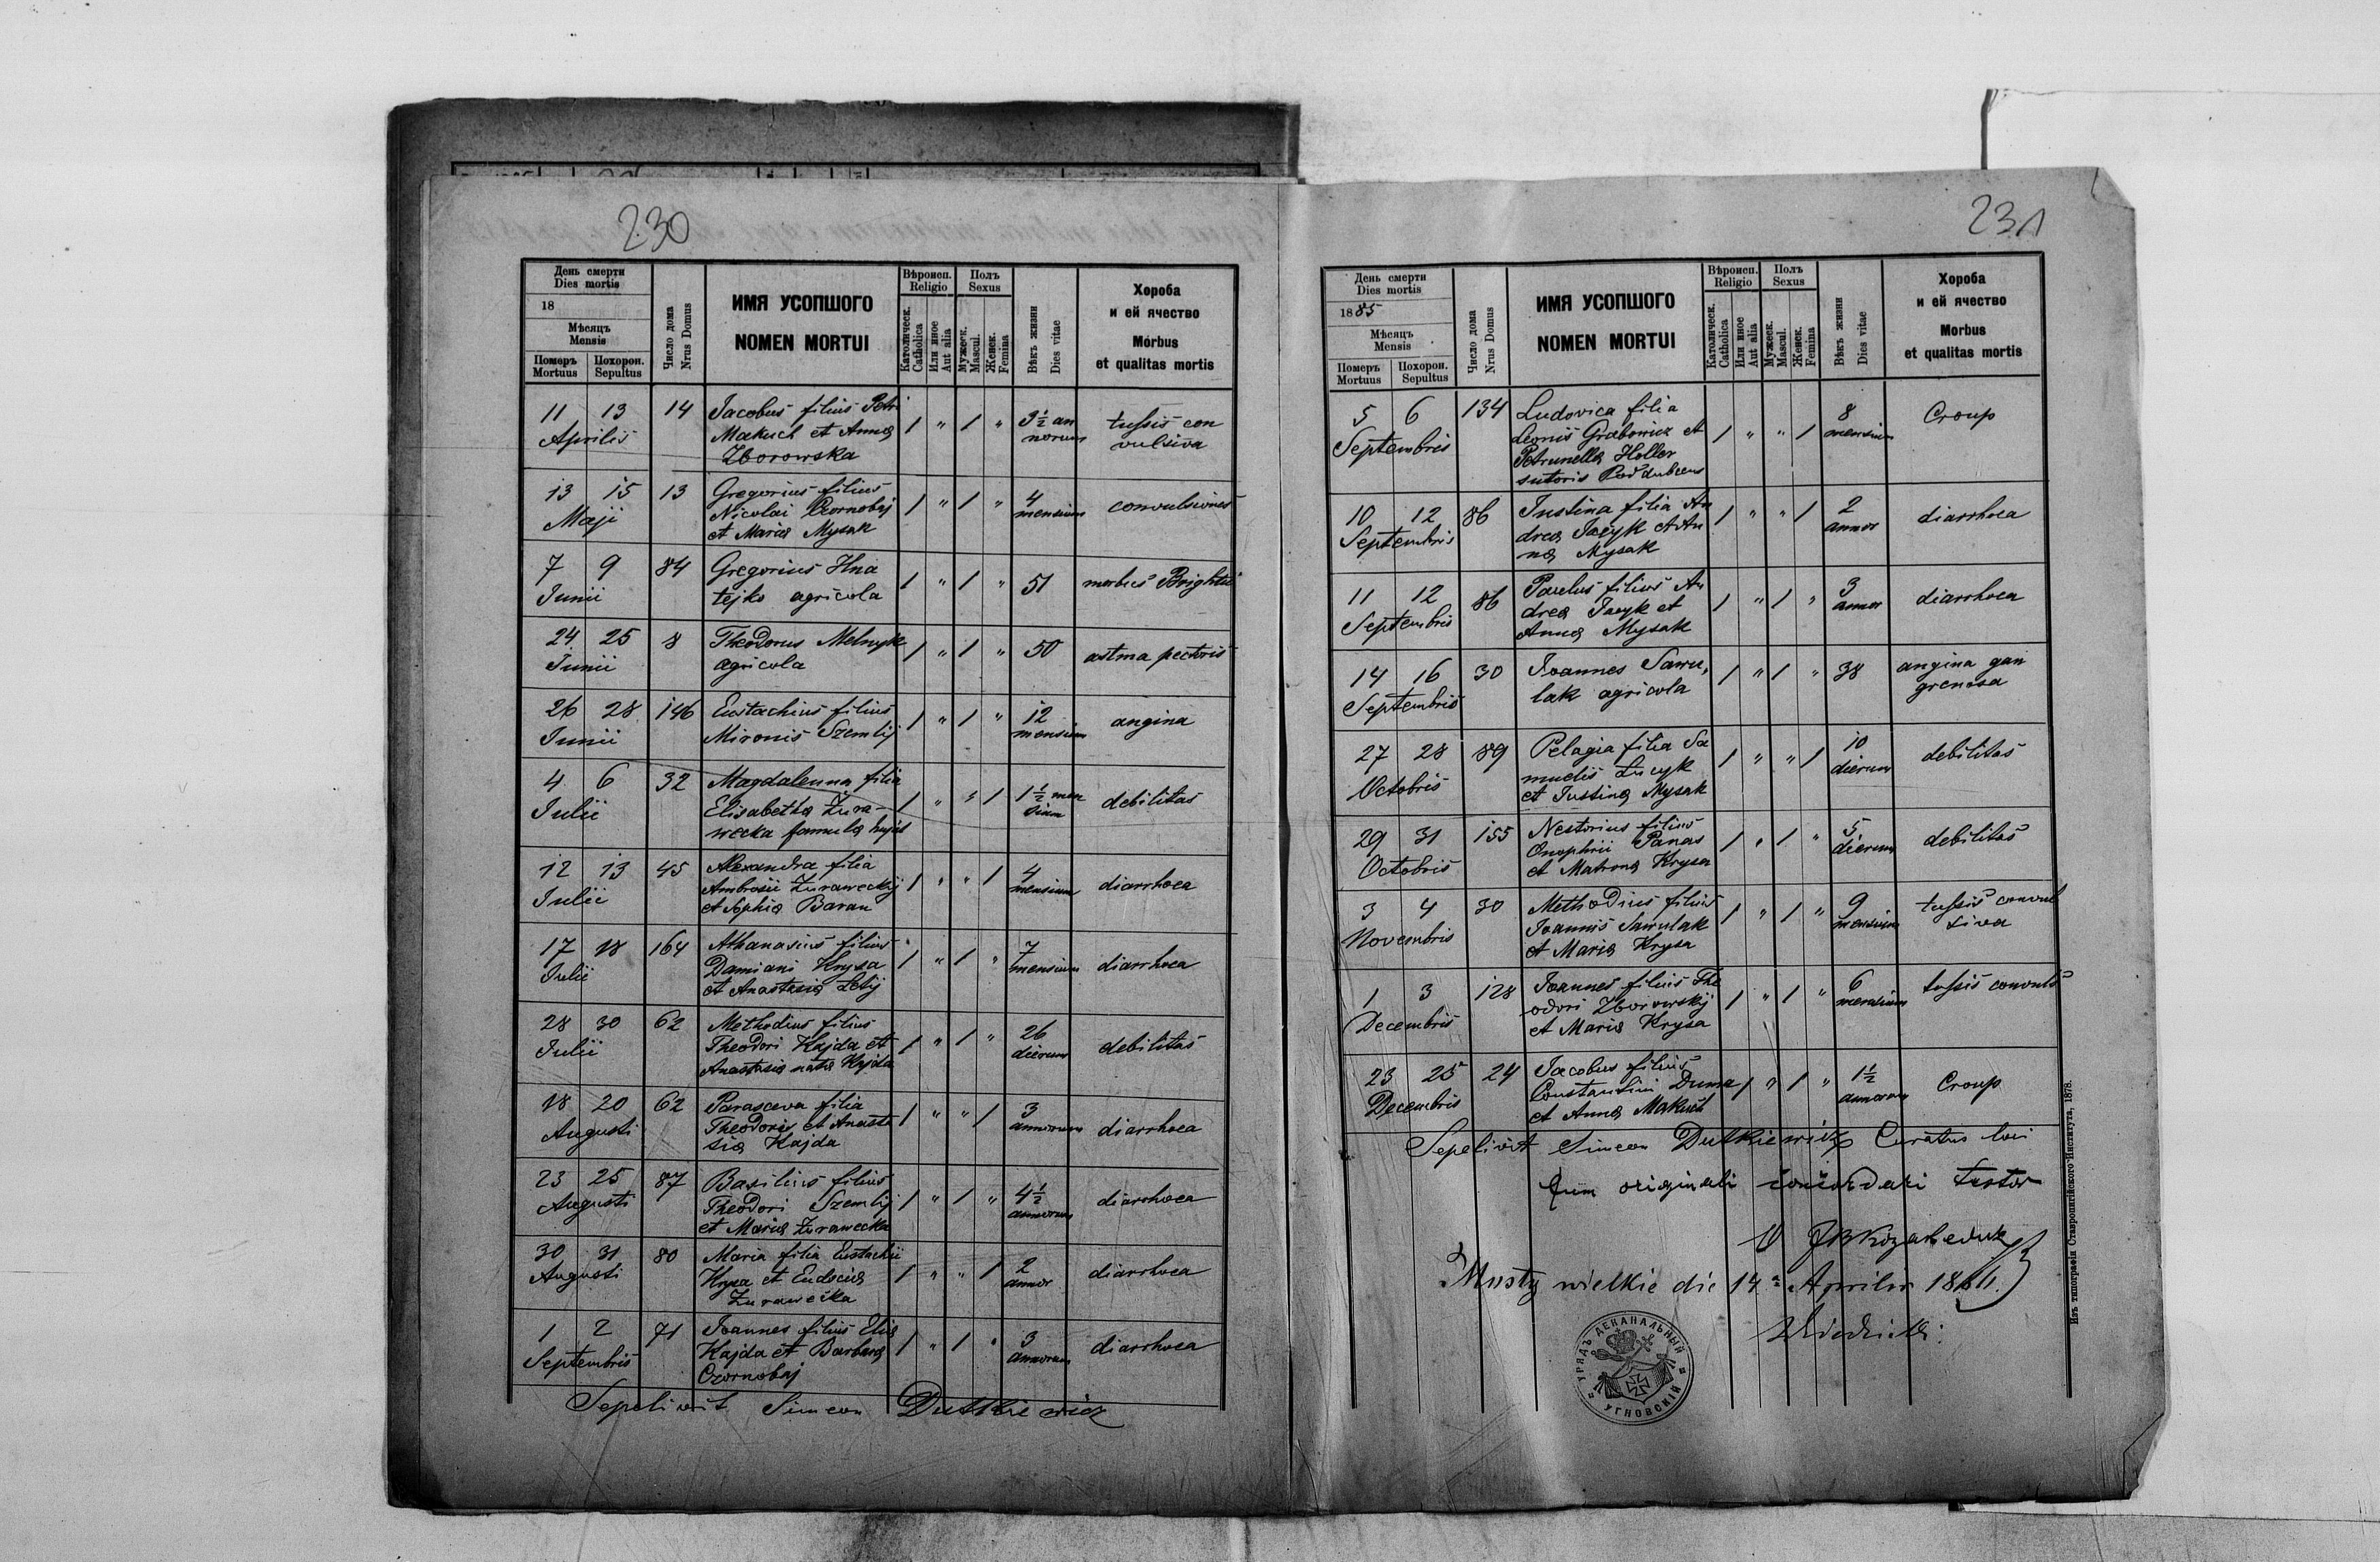 230
День смерти
Dies mortis
18
Мѣсяцъ
Mensis
Померъ Похорон.
Mortuus Sepultus
Число дома
Nrus Domus
ИМЯ УСОПШОГО
NOMEN MORTUI
Вѣроисп.
Religio
Католическ.
Catholica
Или иное
Aut alia
Полъ
Sexus
Мужеск.
Mascul.
Женск.
Femina
Вѣкъ жизни
Dies vitae
Хороба
и ей ячество
Morbus
et qualitas mortis
11 13 14 Jacobus filius Petri 1 " 1 " 3½ an tussis con
Aprilis Makuch et Anna norum vulsiva
Zborowska
13 15 13 Gregorius filius 1 " 1 " 4 convulsiones
Maji Nicolai Czornobaj mensium
et Maria Mysak
7 9 84 Gregorius Hna 1 " 1 " 51 morbus Brightii
Junii tejko agricola
24 25 8 Theodorus Melnyk 1 " 1 " 50 astma pectoris
Junii agricola
26 28 146 Eustachius filius 1 " 1 " 12 angina
Junii Mironis Szemlij mensium
4 6 32 Magdalenna filia 1 " " 1 1½ men debilitas
Julii Elisabetha Żura- sium
wecka famula hujus
12 13 45 Alexandra filia 1 " " 1 4 diarrhoea
Julii Ambrosii Żuraweckij mensium
et Sophia Baran
17 18 164 Athanasius filius 1 " 1 " 7 diarrhoea
Julii Damiani Krysa mensium
et Anastasia
28 30 62 Methodius filius 1 " 1 " 26 debilitas
Julii Theodori Kajda et dierum
Anastasia nata Kajda
18 20 62 Parasceva filia 1 " " 1 3 diarrhoea
Augusti Theodoris et Anasta annorum
sia Kajda
23 25 87 Basilius filius 1 " 1 " 4½ diarrhoea
Augusti Theodori Szemlij annorum
et Maria Żurawecka
30 31 80 Maria filia Eustachii 1 " " 1 2 diarrhoea
Augusti Krysa et Eudocia annor
Żurawecka
1 2 71 Joannes filius Elia 1 " 1 " 3 diarrhoea
Septembris Kajda et Barbara annorum
Czornobaj
Sepelivit Simeon Dutkiewicz
231
День смерти
Dies mortis
1885
Мѣсяцъ
Mensis
Померъ Похорон.
Mortuus Sepultus
Число дома
Nrus Domus
ИМЯ УСОПШОГО
NOMEN MORTUI
Вѣроисп.
Religio
Католическ.
Catholica
Или иное
Aut alia
Полъ
Sexus
Мужеск.
Mascul.
Женск.
Femina
Вѣкъ жизни
Dies vitae
Хороба
и ей ячество
Morbus
et qualitas mortis
5 6 134 Ludovica filia 1 " " 1 8 Croup
Septembris Leonis Grabowicz et mensium
Petrunella Holler
sutoris Poddubcens
10 12 86 Justina filia An 1 " " 1 2 diarrhoea
Septembris drea Jacyk et An annor
na Mysak
11 12 86 Paulus filius An 1 " 1 " 3 diarrhoea
Septembris drea Jacyk et annor
Anna Mysak
14 16 30 Joannes Sawu, 1 " 1 " 38 angina gan
Septembris lak agricola grenosa
27 28 89 Pelagia filia Sa 1 " " 1 10 debilitas
Octobris muelis Łucyk dierum
et Justina Mysak
29 31 155 Nestorius filius 1 " 1 " 5 debilitas
Octobris Onophrii Panas dierum
et Matrona Krysa
3 4 30 Methodius filius 1 " 1 " 9 tussis convul
Novembris Joannis Sawulak mensium siva
et Maria Krysa
1 3 128 Joannes filius The 1 " 1 " 6 tussis convuls
Decembris odori Zborowskij mensium
et Maria Krysa
23 25 24 Jacobus filius 1 " 1 " 1½ Croup
Decembris Constantini Duma annorum
et Anna Makuch
Sepelivit Simeon Dutkiewicz Curatus loci
Cum originali concordari testor
Musty wielkie die 14a Aprilis 1886.
УРЯДЪ ДЕКАНАЛЬНЫЙ
УГНОВСКІЙ
Изъ типографіи Ставропигійского Института, 1878.